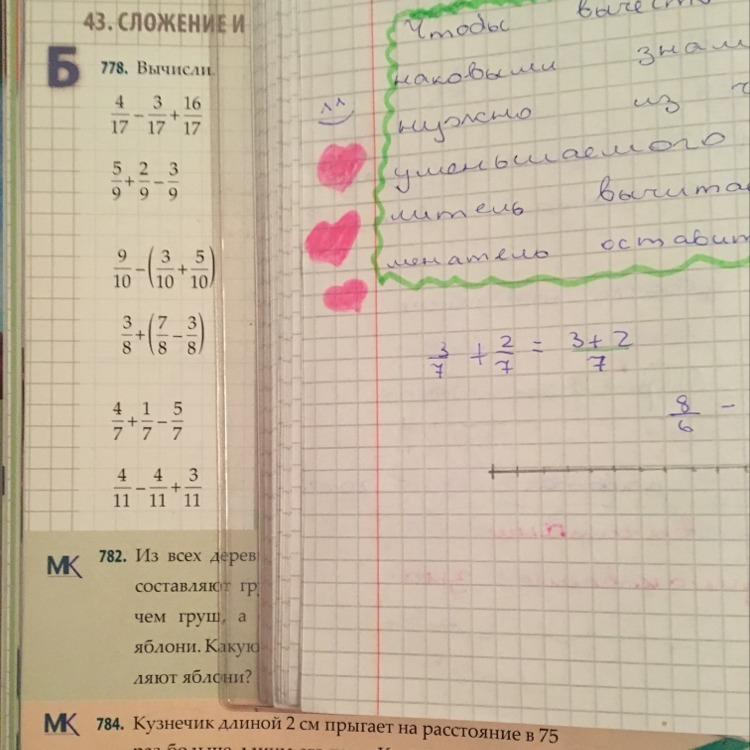 43. СЛОЖЕНИЕ И
Б 778. Вычисли
4/17 − 3/17 + 16/17
5/9 + 2/9 − 3/9
9/10 − (3/10 + 5/10)
3/8 + (7/8 − 3/8)
4/7 + 1/7 − 5/7
4/11 − 4/11 + 3/11
МК 782. Из всех дерев
составляют гр
чем груш, а
яблони. Какую
ляют яблони?
МК 784. Кузнечик длиной 2 см прыгает на расстояние в 75
Чтобы вычест
наковыми знам
нужно из ч
уменьшаемого
литель вычита
менатель оставит
3/7 + 2/7 = 3+2/7
8/6 −